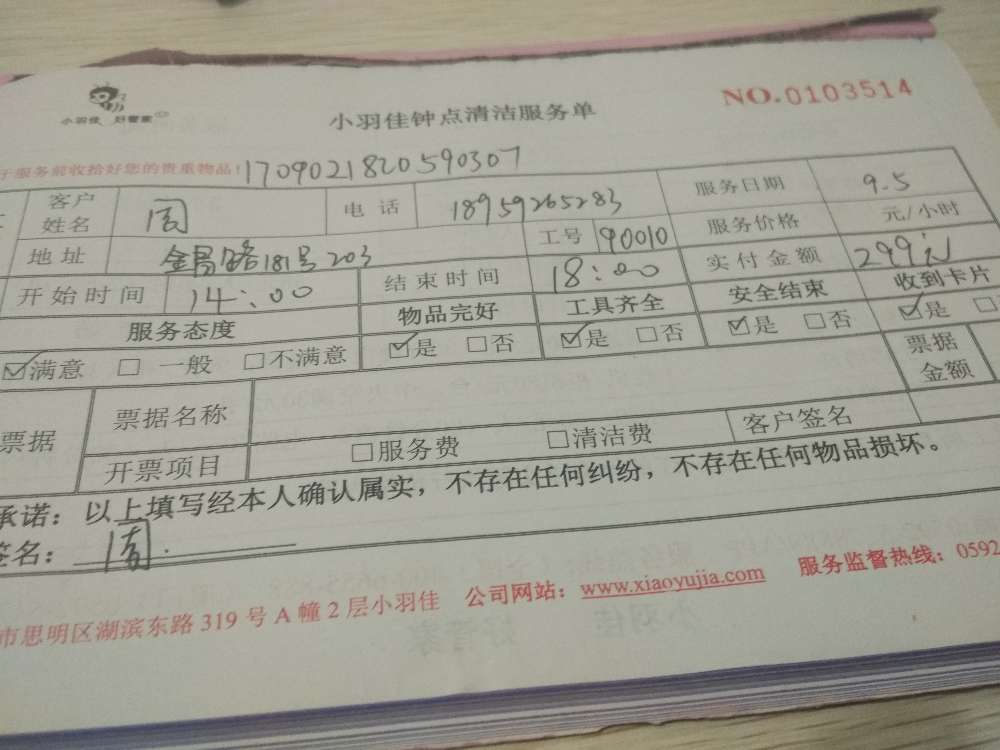 小羽佳 好管家
小羽佳钟点清洁服务单
NO.0103514
于服务前收拾好您的贵重物品! 1709021820590307
客户姓名 周 电话 18959265283 服务日期 9.5
地址 金昌路181号203 工号 90010 服务价格 元/小时
开始时间 14:00 结束时间 18:00 实付金额 299元
服务态度 物品完好 工具齐全 安全结束 收到卡片
☑满意 □一般 □不满意 ☑是 □否 ☑是 □否 ☑是 □否 ☑是 □
票据 票据名称 票据金额
开票项目 □服务费 □清洁费 客户签名
承诺：以上填写经本人确认属实，不存在任何纠纷，不存在任何物品损坏。
签名：周
市思明区湖滨东路319号A幢2层小羽佳 公司网站：www.xiaoyujia.com 服务监督热线：0592